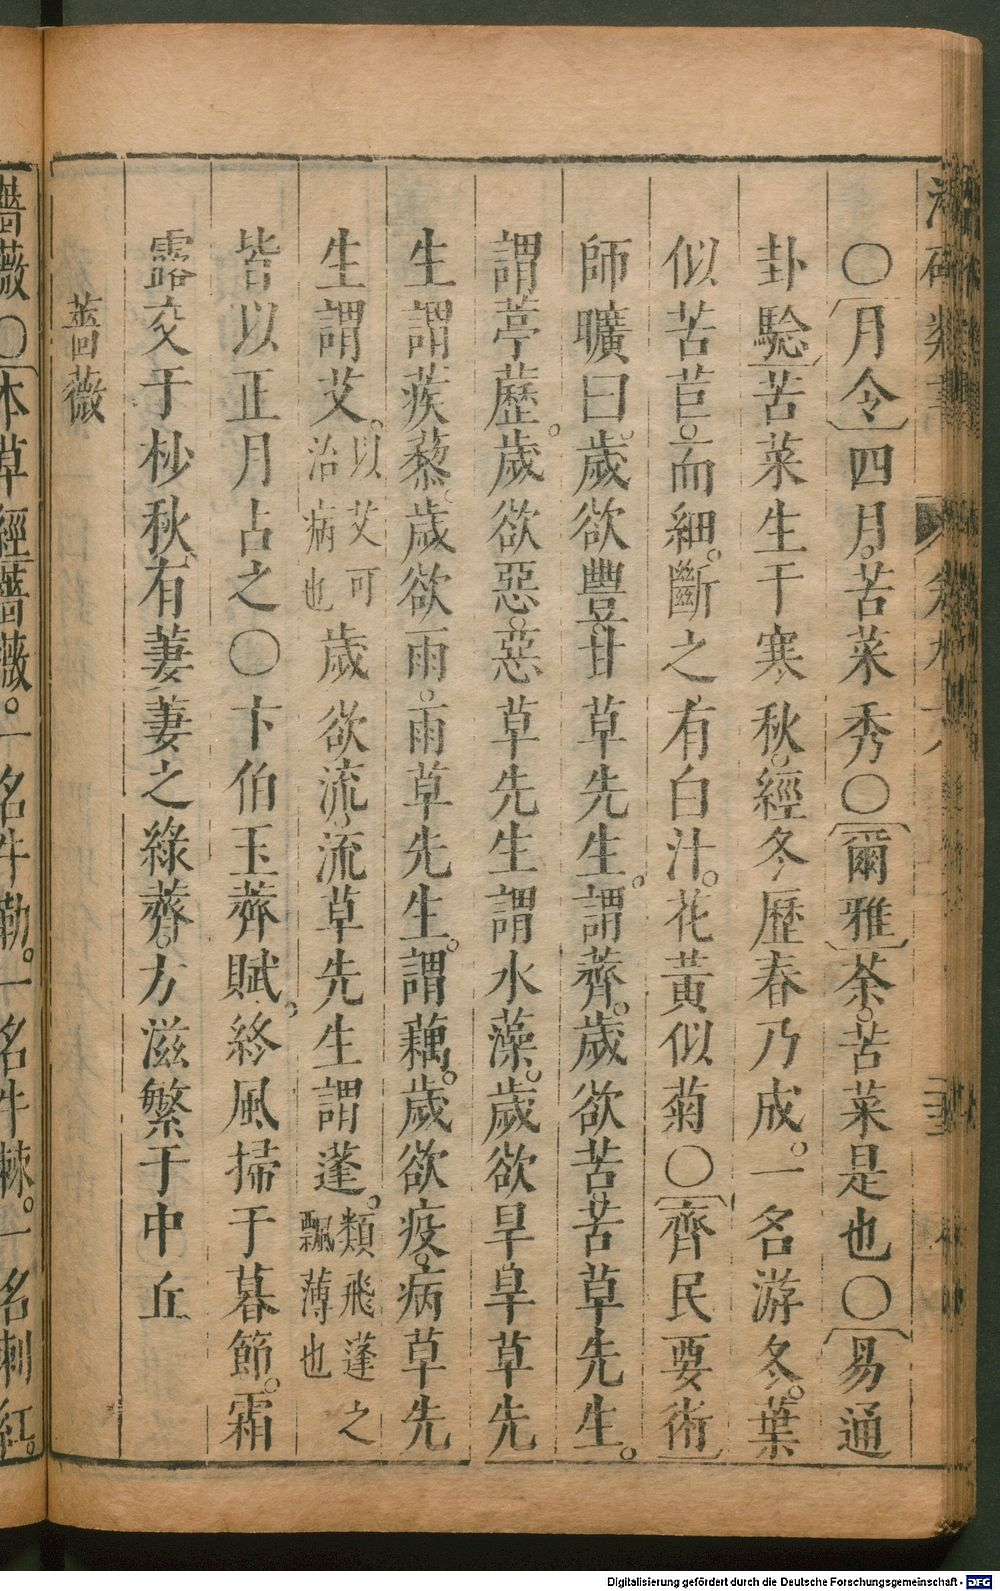 〇月令四月。苦菜秀〇爾雅荼。苦菜是也〇易通
卦騐苦菜生于寒秋。經冬歷春乃成。一名游冬。葉
似苦苣。而細。斷之有白汁。花黃似菊〇齊民要術
師曠曰歲欲豐甘草先生。謂薺。歲欲苦。苦草先生。
謂葶藶。歲欲惡。惡草先生謂水藻。歲欲旱。旱草先
生謂蒺藜。歲欲雨。雨草先生。謂藕。歲欲疫。病草先
生謂艾。以艾可治病也歲欲流。流草先生謂蓬。類飛蓬之飄薄也
皆以正月占之〇卞伯玉薺賦。終風掃于暮節。霜
露交于杪秋。有萋萋之綠薺。方滋繁于中丘
薔薇
薔薇〇本草經薔薇。一名牛勒。一名牛棘。一名刺紅。
Digitalisierung gefördert durch die Deutsche Forschungsgemeinschaft - DFG